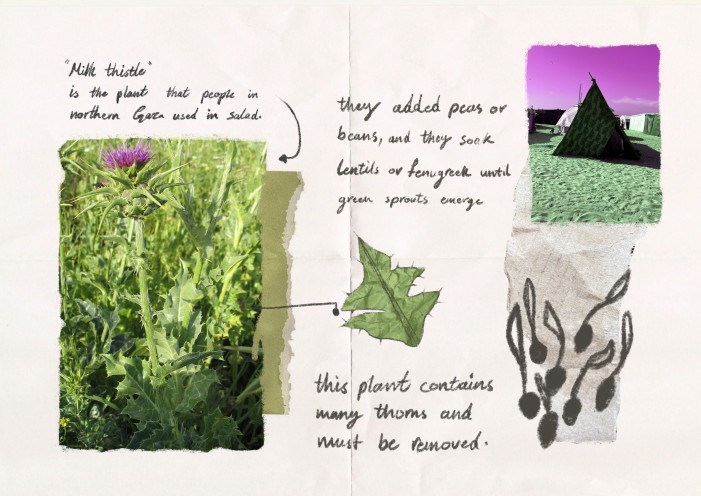 "Milk thistle"
is the plant that people in
northern Gaza used in salad.
they added peas or
beans, and they soak
lentils or fenugreek until
green sprouts emerge
this plant contains
many thorns and
must be removed.